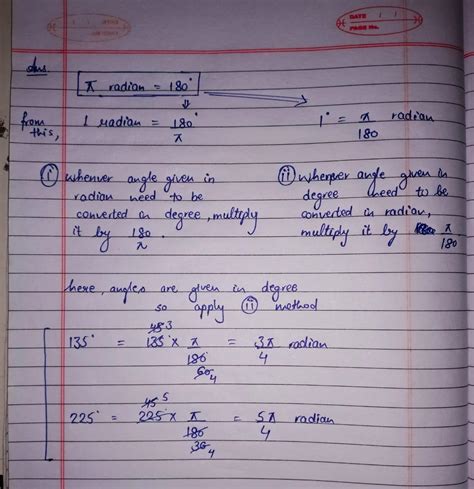 DATE
PAGE No.
Ans
π radian = 180°
from this,
1 radian = 180°/π
1° = π/180 radian
(i) whenver angle given in
radian need to be
converted in degree, multiply
it by 180/π.
(ii) whenever angle given in
degree need to be
converted in radian,
multiply it by π/180
here, angles are given in degree
so apply (ii) method
135° = 135 × π/180 = 3π/4 radian
45 3
60 4
225° = 225 × π/180 = 5π/4 radian
45 5
36 4